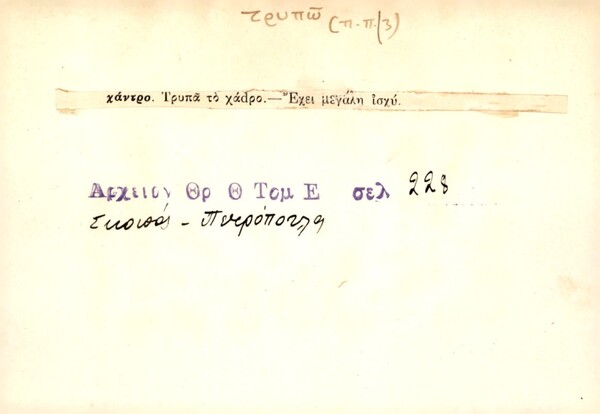 τρυπῶ (π.π./3)
χάντρο. Τρυπᾶ τὸ χάdρο.—Ἔχει μεγάλη ἰσχύ.
Αρχειον Θρ Θ Τομ Ε σελ 228
Σκοπός - Πετρόπουλα